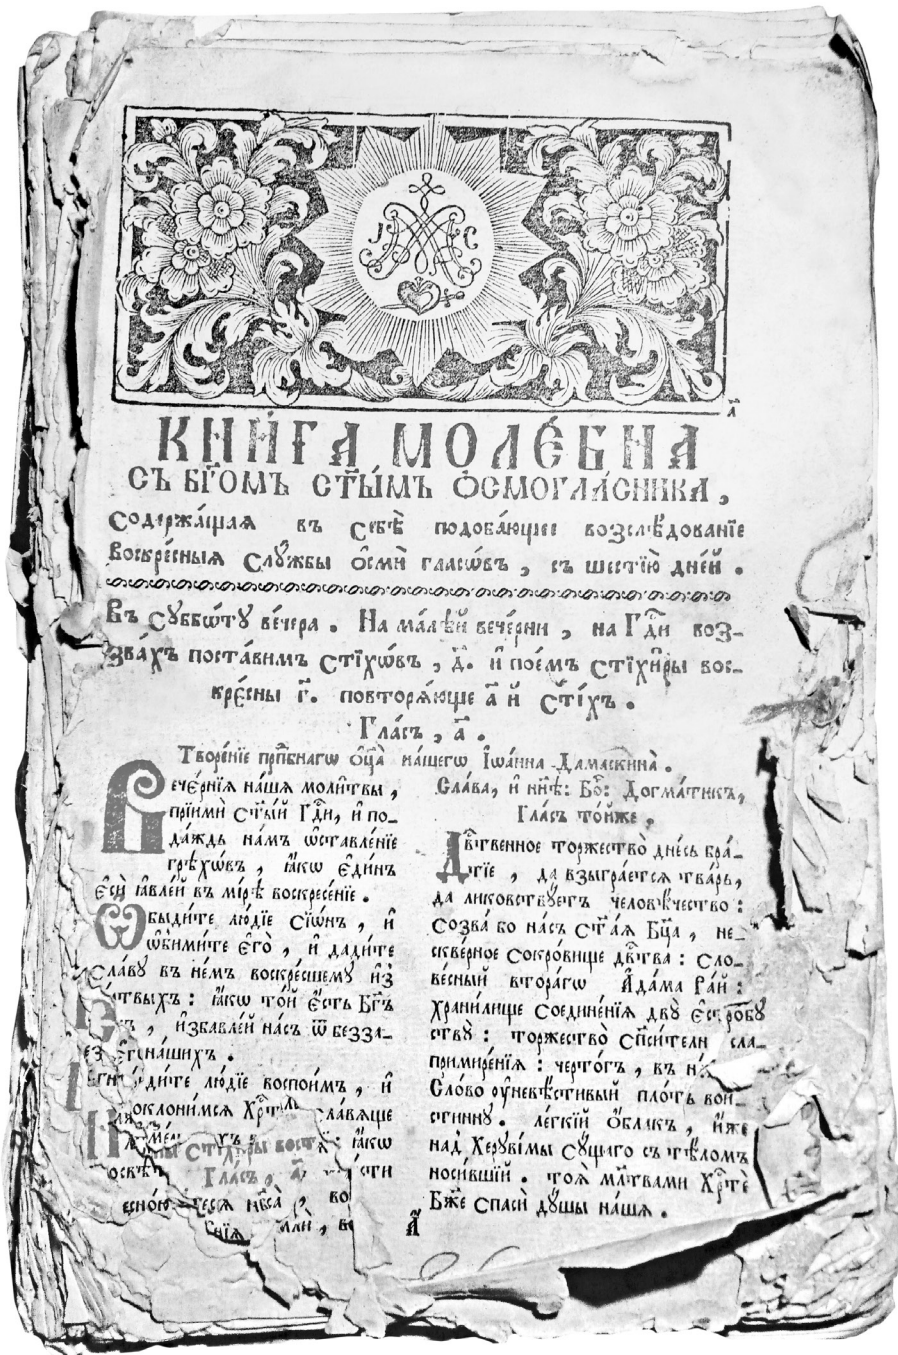 І С
а҃
КНИ́ГА МОЛЕ́БНА
СЪ БГ҃ОМЪ СТ҃Ы́МЪ Ѻ҆СМОГЛА́СНИКА ,
содержа́щая въ себѣ̀ подоба́ющее возслѣ́дованїе
воскре́сныя слꙋ́жбы ѻ҆смѝ гласѡ́въ , съ шестїю̀ дне́й .
Въ сꙋббѡ́тꙋ ве́чера . На ма́лѣй вече́рни , на Гд҇и воз-
зва́хъ поста́вимъ стїхѡ́въ , д҃. и҆ пое́мъ стїхи҄ры вос-
кре́сны г҃. повторѧ́юще а҃ й ст҇і́хъ .
Гла́съ , а҃ .
Творе́нїе прп҇бнагѡ ѻ҆ц҃а̀ на́шегѡ І҆ѡа́нна Дамаски́на̀ .
Вече́рнїя на́шя моли́твы ,
прїимѝ ст҃ы́й Гд҇и , и҆ по-
да́ждь на́мъ ѡ҆ставле́нїе
грѣхѡ́въ , ꙗ҆́кѡ є҆ди́нъ
є҆сѝ ꙗ҆вле́й въ мі́рѣ воскресе́нїе .
Ѡ҆быди́те лю́дїе сїѡ́нъ , и҆
ѡ҆бими́те є҆го̀ , и҆ дади́те
сла́вꙋ въ не́мъ воскре́сшемꙋ и҆з̾
твыхъ : ꙗ҆́кѡ то́й є҆́сть Бг҃ъ
, и҆збавле́й на́съ ѿ безза-
на́шихъ .
ди́те лю́дїе воспои́мъ , и҆
оклони́мся Хр҇т лавяще
ꙗ҆́кѡ
Гла́съ , а҃
нб҃са̀ , во
Сла́ва , и҆ нн҃ѣ : Бо҇ : Догма́тикъ ,
Гла́съ то́йже .
Дв҃твенное торжество̀ дне́сь бра́-
тїе , да взыгра́етсѧ тва́рь ,
да ликовствꙋ́етъ человѣ́чество :
созва́ бо на́съ ст҃а́я Бц҃а , не-
скве́рное сокро́вище дв҃тва : сло-
ве́сный втора́гѡ А҆да́ма Ра́й :
храни́лище соедине́нїя двꙋ̀ є҆стро҇бꙋ̀
ствꙋ̀ : торжество̀ сп҃си́тели сла-
примире́нїя : черто́гъ , въ не́
Сло́во ᲂу҆невѣ́стивый пло́ть вои́-
стиннꙋ . ле́гкїй ѻ҆́блакъ , и҆́же
над̾ Херꙋві́мы сꙋ́щаго съ тѣ́ломъ
носи́вшїй . тоѧ̀ мл҃твами Хр҇тѐ
Бж҃е спасѝ дꙋ́шы на́шя .
а҃